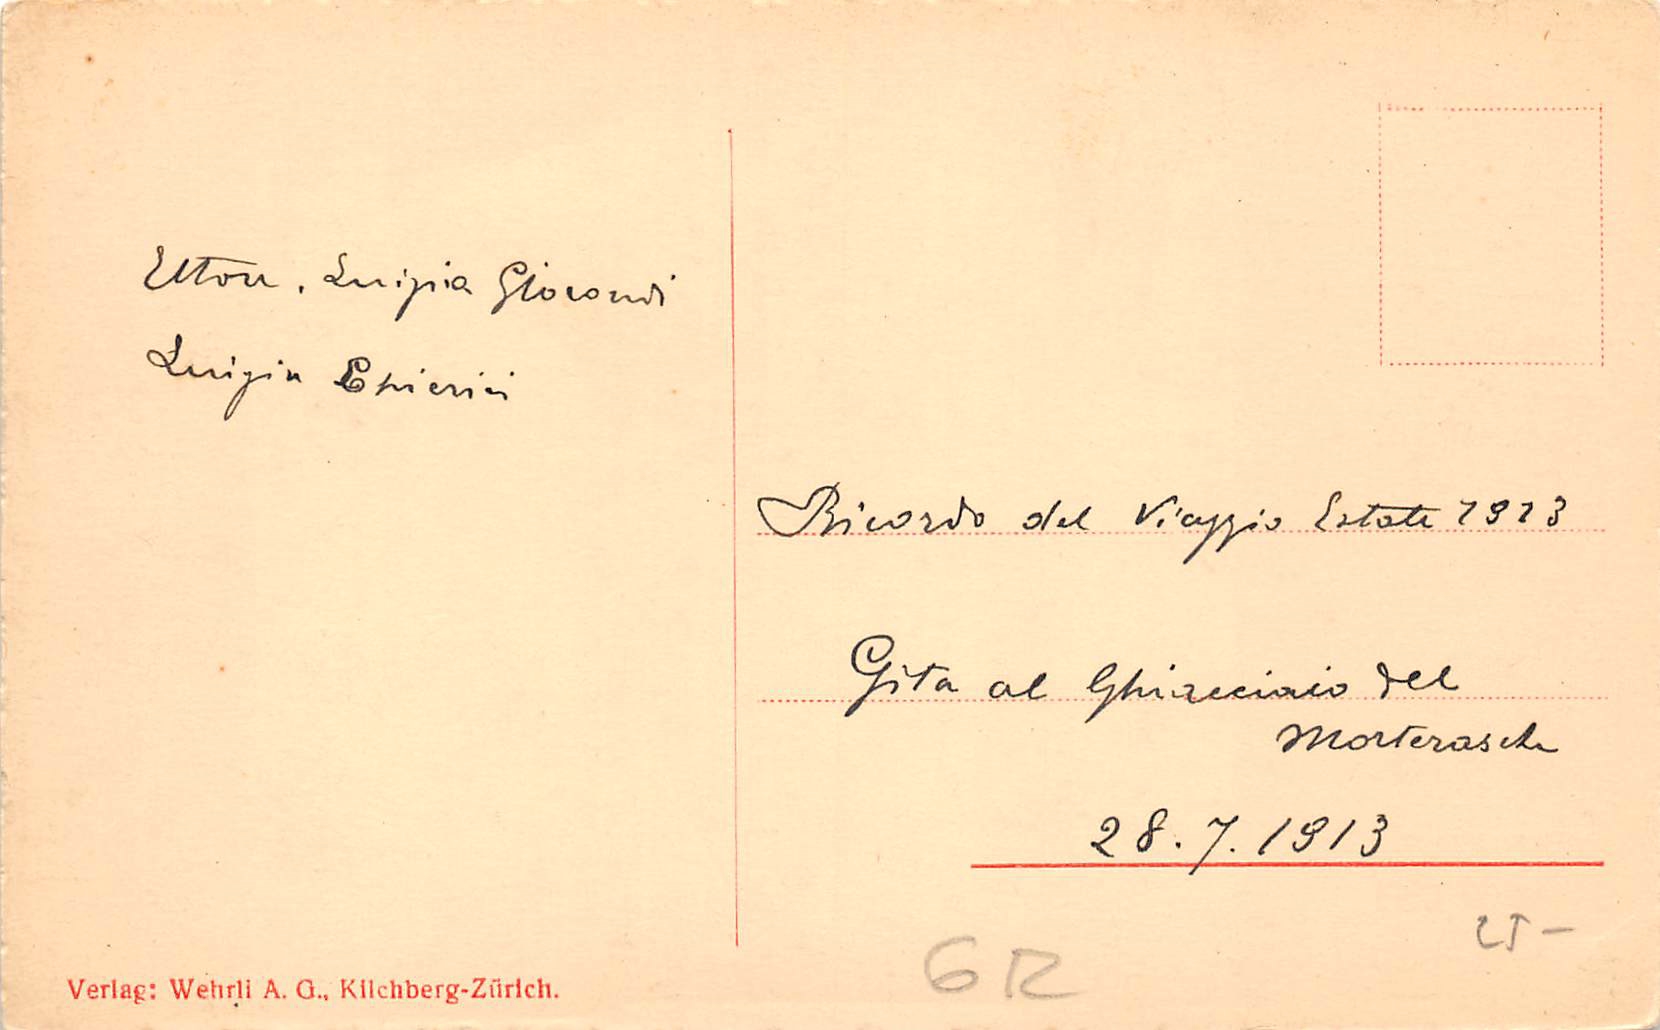 Ettore, Luigia Giocondi
Luigia Chierici
Ricordo del Viaggio Estate 1913
Gita al Ghiacciaio del
Morterasch
28.7.1913
GR
25-
Verlag: Wehrli A. G., Kilchberg-Zürich.